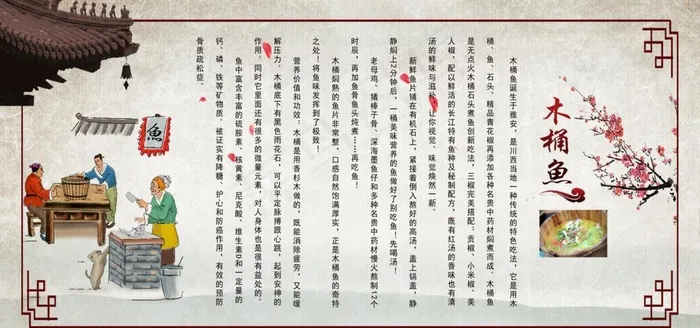 木桶魚
木桶鱼诞生于雅安，是川西当地一种传统的特色吃法，它是用木
桶、鱼、石头、精品青花椒再添加各种名贵中药材焖煮而成。木桶鱼
是无点火木桶石头煮鱼创新吃法，三椒完美搭配：贡椒、小米椒、美
人椒，配以鲜活的长江特有鱼种及秘制配方，既有红汤的香味也有清
汤的鲜味与滋补，让你视觉、味觉焕然一新。
新鲜鱼片铺在有机石上，紧接着倒入熬好的高汤，盖上锅盖，静
静焖上2分钟后，一桶美味营养的鱼做好了别吃鱼！先喝汤！
老母鸡、猪棒子骨、深海墨鱼仔和多种名贵中药材慢火熬制12个
时辰，再加鱼骨鱼头炖煮……再吃鱼！
木桶焖熟的鱼片非常整，口感自然饱满厚实，正是木桶鱼的奇特
之处！将鱼味发挥到了极致！
营养价值和功效：木桶是用香杉木做的，既能消除疲劳，又能缓
解压力。木桶底下有黑色雨花石，可以平定脉搏跟心跳，起到安神的
作用。同时它里面还有很多的微量元素，对人身体也是很有益处的。
鱼中富含丰富的硫胺素、核黄素、尼克酸、维生素D和一定量的
钙、磷、铁等矿物质、被证实有降糖、护心和防癌作用，有效的预防
骨质疏松症。
魚